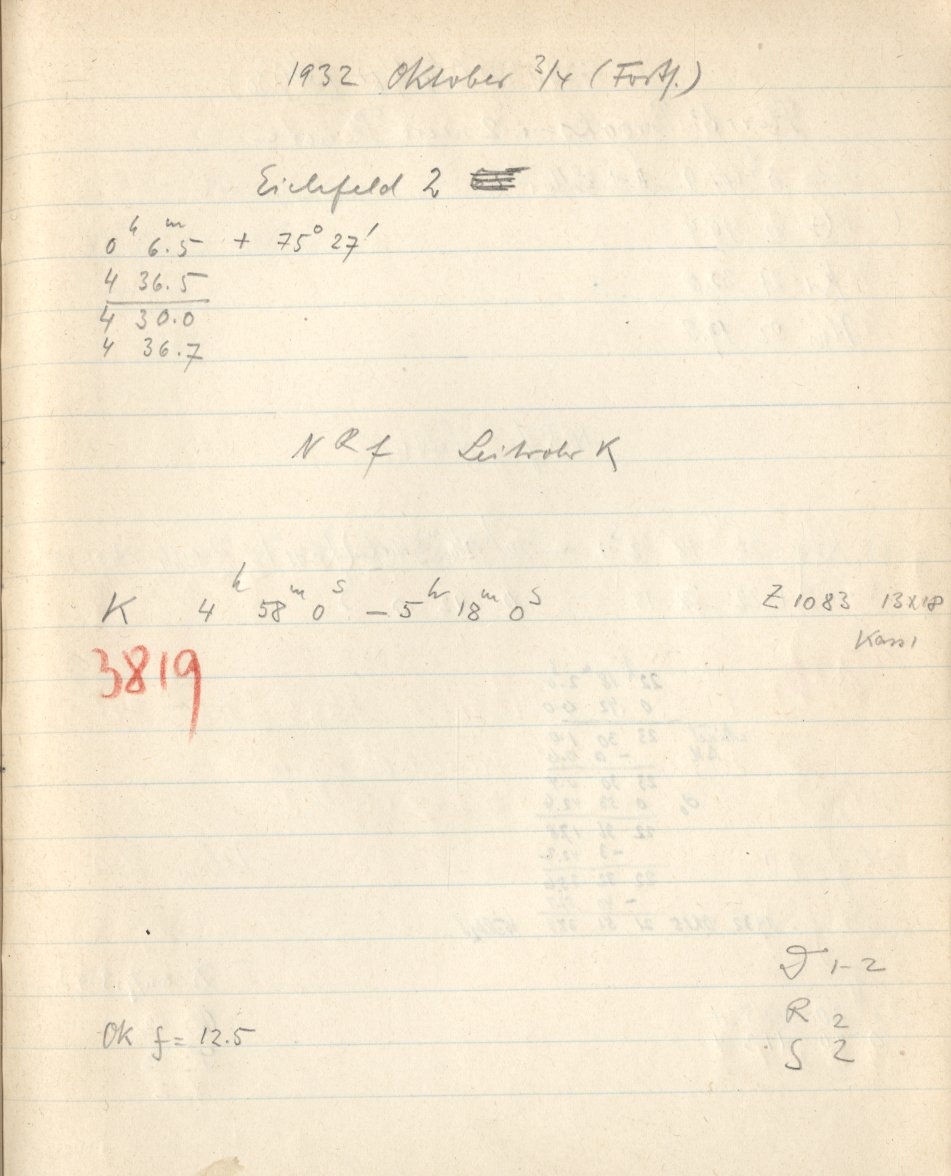 1932 Oktober 3/4 (Forts.)
Eichfeld 2
0ʰ 6.5ᵐ + 75° 27'
4 36.5
4 30.0
4 36.7
N R f Leitrohr K
K 4ʰ 58ᵐ 0ˢ – 5ʰ 18ᵐ 0ˢ Z 1083 13x18
Kass 1
3819
D 1-2
R 2
OK f = 12.5
S 2